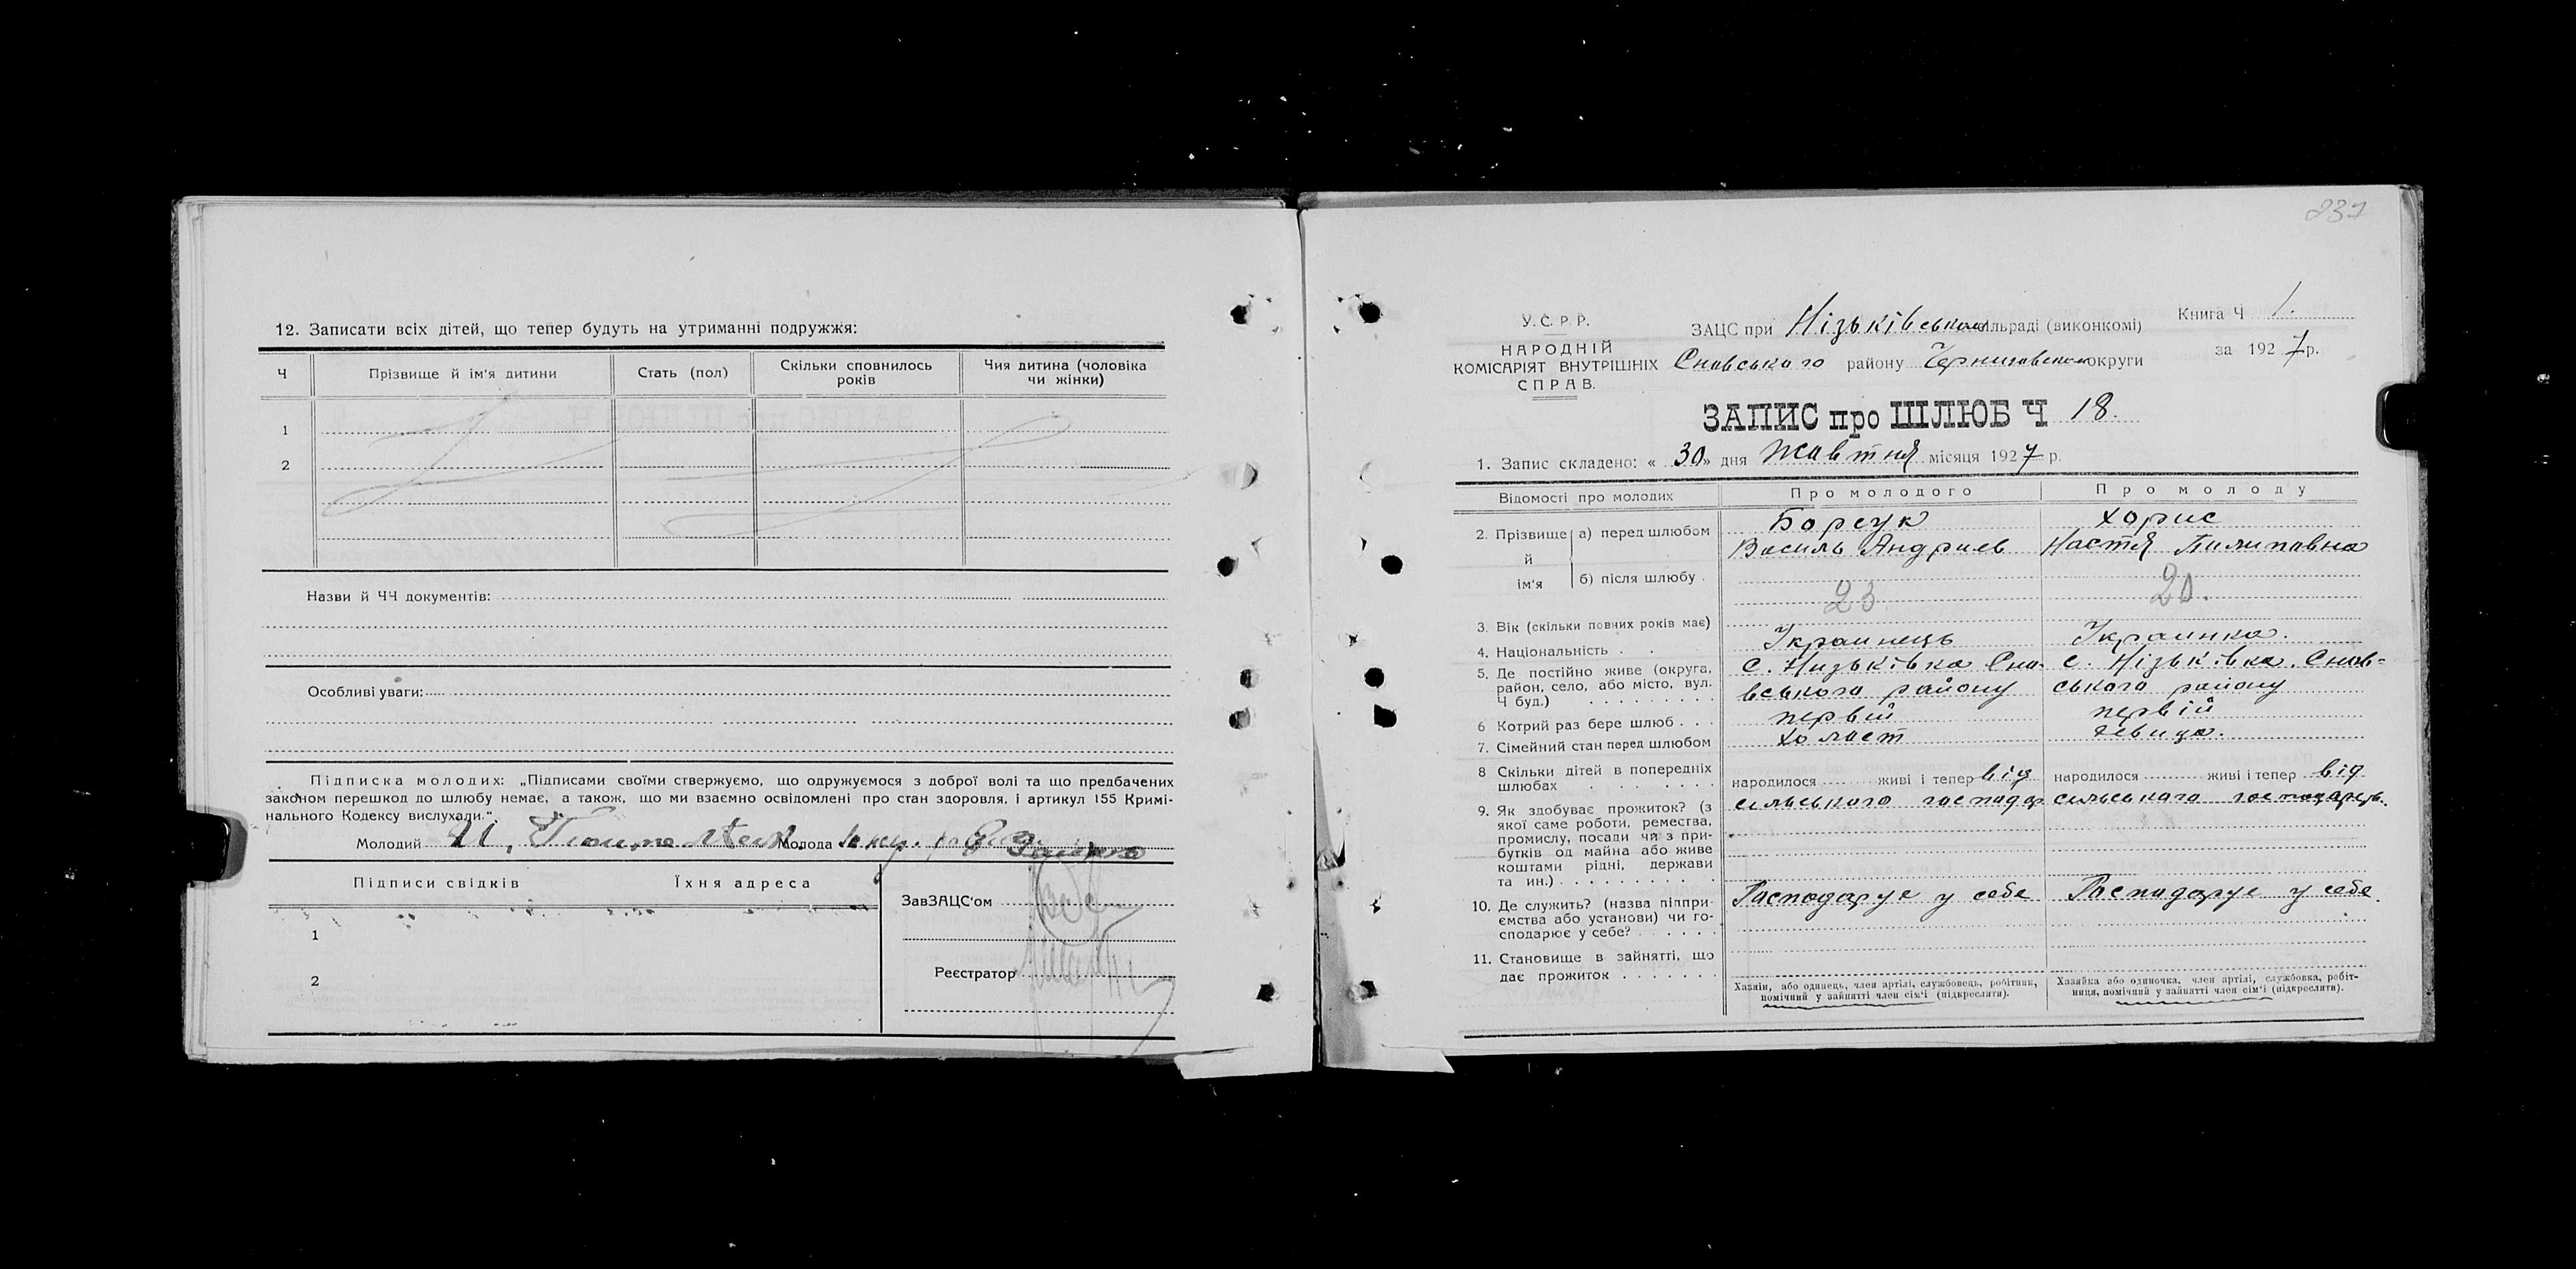 12. Записати всіх дітей, що тепер будуть на утриманні подружжя:
Ч Прізвище й ім'я дитини Стать (пол) Скільки сповнилось років Чия дитина (чоловіка чи жінки)
1
2
Назви й ЧЧ документів:
Особливі уваги:
Підписка молодих: „Підписами своїми стверджуємо, що одружуємося з доброї волі та що предбачених
законом перешкод до шлюбу немає, а також, що ми взаємно освідомлені про стан здоровля, і артикул 155 Кримі-
нального Кодексу вислухали."
Молодий Молода
Підписи свідків Їхня адреса
ЗавЗАЦС'ом
1
Реєстратор
2
237
У. С. Р. Р.
НАРОДНІЙ
КОМІСАРІЯТ ВНУТРІШНІХ
СПРАВ.
ЗАЦС при Нізьківськ сільраді (виконкомі)
Сновського району Черниговської округи
Книга Ч 1.
за 1927 р.
ЗАПИС про ШЛЮБ Ч 18.
1. Запис складено: « 30 » дня Жавтня місяця 1927 р.
Відомості про молодих Про молодого Про молоду
2. Прізвище й ім'я а) перед шлюбом Борсук Хорис
Василь Андриев Настя Пилиповна
б) після шлюбу
23 20.
3. Вік (скільки повних років має)
4. Національність Украинець Украинка.
5. Де постійно живе (округа, район, село, або місто, вул. Ч буд.) с. Низьківка Сно- с. Нізьківка. Снов-
вського району ського району
6 Котрий раз бере шлюб первій первій
7. Сімейний стан перед шлюбом холаст девица.
8 Скільки дітей в попередніх шлюбах народилося живі і тепер народилося живі і тепер
від від
9. Як здобуває прожиток? (з якої саме роботи, ремества, промислу, посади чи з прибутків од майна або живе коштами рідні, держави та ин.) сильського господар сильського господарсь.
10. Де служить? (назва підприємства або установи) чи господарює у себе? Господарує у себе Господарує у себе.
11. Становище в зайнятті, що дає прожиток
Хазяїн, або одинець, член артілі, службовець, робітник, помічний у зайнятті член сім'ї (підкреслити).
Хазяйка або одиночка, член артілі, службовка, робіт-
ниця, помічний у зайнятті член сім'ї (підкреслити).